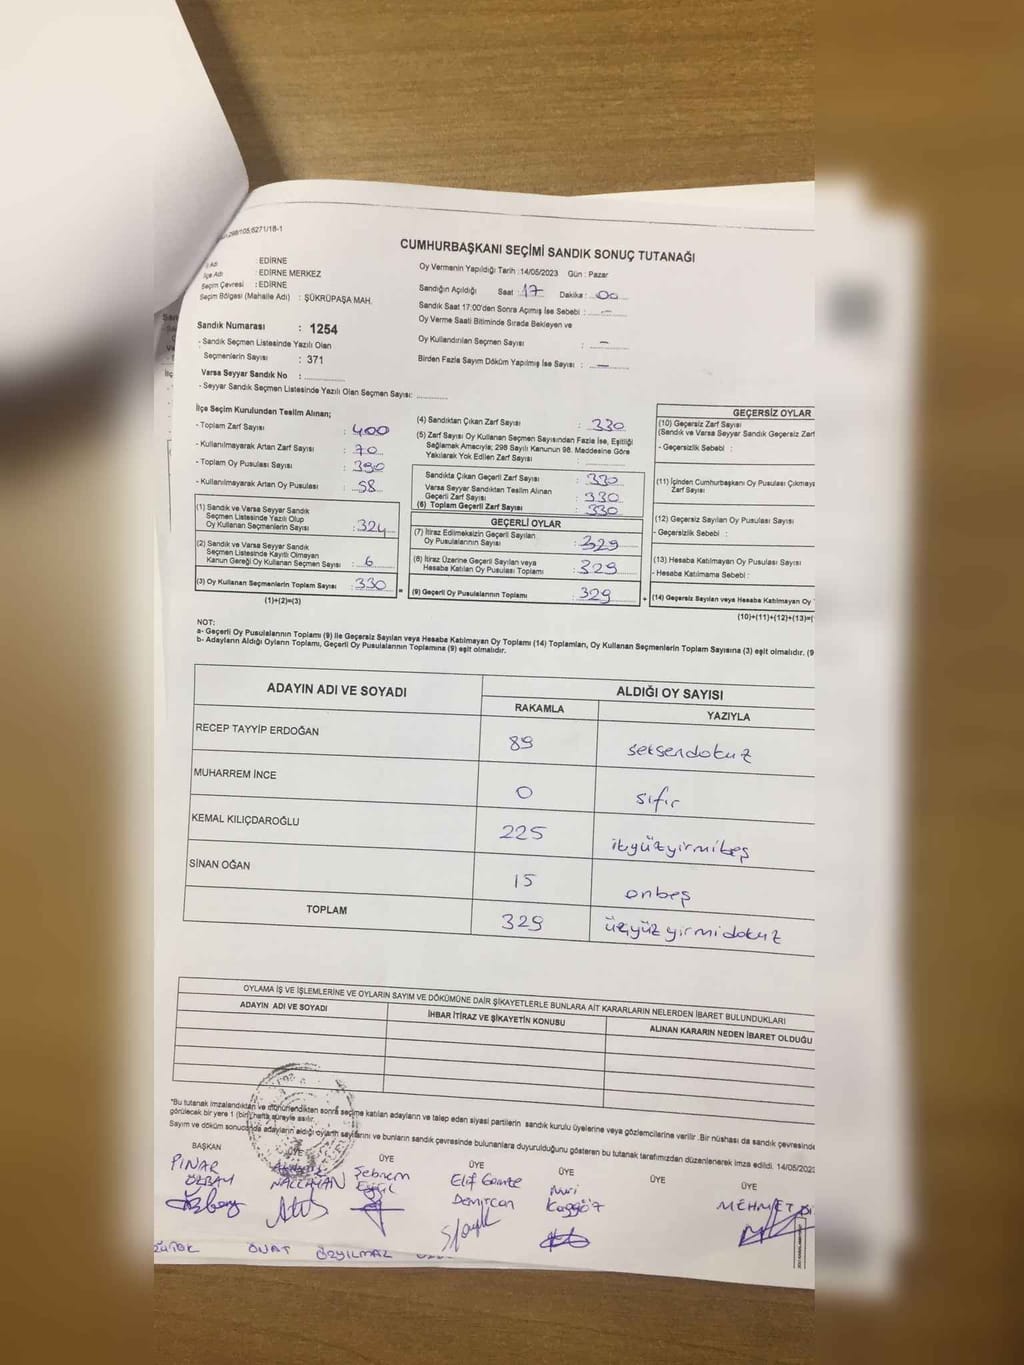 298/105,6271/18-1
CUMHURBAŞKANI SEÇİMİ SANDIK SONUÇ TUTANAĞI
İl Adı : EDİRNE
İlçe Adı : EDİRNE MERKEZ
Seçim Çevresi : EDİRNE
Seçim Bölgesi (Mahalle Adı) : ŞÜKRÜPAŞA MAH.
Sandık Numarası : 1254
- Sandık Seçmen Listesinde Yazılı Olan
Seçmenlerin Sayısı : 371
Varsa Seyyar Sandık No :
- Seyyar Sandık Seçmen Listesinde Yazılı Olan Seçmen Sayısı:
Oy Vermenin Yapıldığı Tarih :14/05/2023 Gün : Pazar
Sandığın Açıldığı Saat : 17 Dakika : 00
Sandık Saat 17:00'den Sonra Açımış İse Sebebi : -
Oy Verme Saati Bitiminde Sırada Bekleyen ve
Oy Kullandırılan Seçmen Sayısı : -
Birden Fazla Sayım Döküm Yapılmış İse Sayısı : -
İlçe Seçim Kurulundan Teslim Alınan;
- Toplam Zarf Sayısı : 400
- Kullanılmayarak Artan Zarf Sayısı : 70
- Toplam Oy Pusulası Sayısı : 390
- Kullanılmayarak Artan Oy Pusulası : 58
(1) Sandık ve Varsa Seyyar Sandık
Seçmen Listesinde Yazılı Olup
Oy Kullanan Seçmenlerin Sayısı : 324
(2) Sandık ve Varsa Seyyar Sandık
Seçmen Listesinde Kayıtlı Olmayan
Kanun Gereği Oy Kullanan Seçmen Sayısı : 6
(3) Oy Kullanan Seçmenlerin Toplam Sayısı : 330
(1)+(2)=(3)
(4) Sandıktan Çıkan Zarf Sayısı : 330
(5) Zarf Sayısı Oy Kullanan Seçmen Sayısından Fazla İse, Eşitliği
Sağlamak Amacıyla; 298 Sayılı Kanunun 98. Maddesine Göre
Yakılarak Yok Edilen Zarf Sayısı :
Sandıkta Çıkan Geçerli Zarf Sayısı : 330
Varsa Seyyar Sandıktan Teslim Alınan
Geçerli Zarf Sayısı : 330
(6) Toplam Geçerli Zarf Sayısı : 330
GEÇERLİ OYLAR
(7) İtiraz Edilmeksizin Geçerli Sayılan
Oy Pusulalarının Sayısı : 329
(8) İtiraz Üzerine Geçerli Sayılan veya
Hesaba Katılan Oy Pusulası Toplamı : 329
= (9) Geçerli Oy Pusulalarının Toplamı : 329 +
GEÇERSİZ OYLAR
(10) Geçersiz Zarf Sayısı
(Sandık ve Varsa Seyyar Sandık Geçersiz Zarf
- Geçersizlik Sebebi :
(11) İçinden Cumhurbaşkanı Oy Pusulası Çıkmaya
Zarf Sayısı
(12) Geçersiz Sayılan Oy Pusulası Sayısı
- Geçersizlik Sebebi :
(13) Hesaba Katılmayan Oy Pusulası Sayısı
- Hesaba Katılmama Sebebi :
(14) Geçersiz Sayılan veya Hesaba Katılmayan Oy
(10)+(11)+(12)+(13)=(
NOT:
a- Geçerli Oy Pusulalarının Toplamı (9) ile Geçersiz Sayılan veya Hesaba Katılmayan Oy Toplamı (14) Toplamları, Oy Kullanan Seçmenlerin Toplam Sayısına (3) eşit olmalıdır. (9
b- Adayların Aldığı Oyların Toplamı, Geçerli Oy Pusulalarının Toplamına (9) eşit olmalıdır.
ADAYIN ADI VE SOYADI
ALDIĞI OY SAYISI
RAKAMLA YAZIYLA
RECEP TAYYİP ERDOĞAN 89 seksendokuz
MUHARREM İNCE 0 sıfır
KEMAL KILIÇDAROĞLU 225 ikiyüzyirmibeş
SİNAN OĞAN 15 onbeş
TOPLAM 329 üçyüzyirmidokuz
OYLAMA İŞ VE İŞLEMLERİNE VE OYLARIN SAYIM VE DÖKÜMÜNE DAİR ŞİKAYETLERLE BUNLARA AİT KARARLARIN NELERDEN İBARET BULUNDUKLARI
ADAYIN ADI VE SOYADI İHBAR İTİRAZ VE ŞİKAYETİN KONUSU ALINAN KARARIN NEDEN İBARET OLDUĞU
"Bu tutanak imzalandıktan ve mühürlendikten sonra seçime katılan adayların ve talep eden siyasi partilerin sandık kurulu üyelerine veya gözlemcilerine verilir. Bir nüshası da sandık çevresinde
görülecek bir yere 1 (bir) hafta süreyle asılır.
Sayım ve döküm sonucunda adayların aldığı oyların sayılarını ve bunların sandık çevresinde bulunanlara duyurulduğunu gösteren bu tutanak tarafımızdan düzenlenerek imza edildi. 14/05/202
BAŞKAN ÜYE ÜYE ÜYE ÜYE ÜYE ÜYE
PINAR ÖZBAY
NALLIHAN
Şebnem
Elif Gamze Demircan
Nuri Kaygöz
MEHMET
ÖZYILMAZ